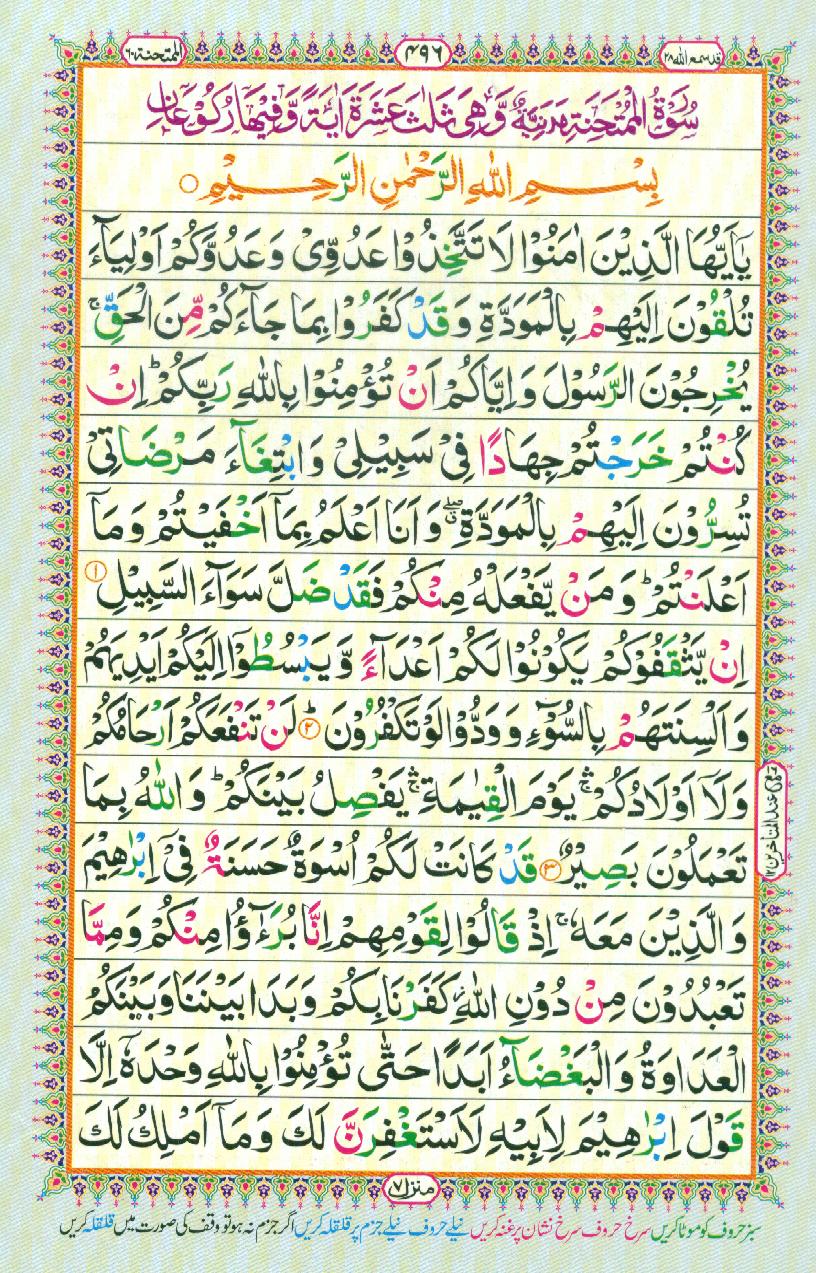 قد سمع الله ٢٨
۴۹۶
الممتحنة ٦٠
سُوْرَةُ الْمُمْتَحِنَةِ مَدَنِيَّةٌ وَّهِيَ ثَلٰثَ عَشْرَةَ اٰيَةً وَّفِيْهَا رُكُوْعَانِ
بِسْمِ اللهِ الرَّحْمٰنِ الرَّحِيْمِ ○
يٰۤاَيُّهَا الَّذِيْنَ اٰمَنُوْا لَا تَتَّخِذُوْا عَدُوِّىْ وَعَدُوَّكُمْ اَوْلِيَآءَ
تُلْقُوْنَ اِلَيْهِمْ بِالْمَوَدَّةِ وَقَدْ كَفَرُوْا بِمَا جَآءَكُمْ مِّنَ الْحَقِّ ۚ
يُخْرِجُوْنَ الرَّسُوْلَ وَاِيَّاكُمْ اَنْ تُؤْمِنُوْا بِاللهِ رَبِّكُمْ ؕ اِنْ
كُنْتُمْ خَرَجْتُمْ جِهَادًا فِىْ سَبِيْلِىْ وَابْتِغَآءَ مَرْضَاتِىْ
تُسِرُّوْنَ اِلَيْهِمْ بِالْمَوَدَّةِ ۖ وَاَنَا اَعْلَمُ بِمَاۤ اَخْفَيْتُمْ وَمَاۤ
اَعْلَنْتُمْ ؕ وَمَنْ يَّفْعَلْهُ مِنْكُمْ فَقَدْ ضَلَّ سَوَآءَ السَّبِيْلِ ①
اِنْ يَّثْقَفُوْكُمْ يَكُوْنُوْا لَكُمْ اَعْدَآءً وَّيَبْسُطُوْۤا اِلَيْكُمْ اَيْدِيَهُمْ
وَاَلْسِنَتَهُمْ بِالسُّوْٓءِ وَوَدُّوْا لَوْ تَكْفُرُوْنَ ؕ② لَنْ تَنْفَعَكُمْ اَرْحَامُكُمْ
وَلَاۤ اَوْلَادُكُمْ ۛۚ يَوْمَ الْقِيٰمَةِ ۛۚ يَفْصِلُ بَيْنَكُمْ ؕ وَاللهُ بِمَا
تَعْمَلُوْنَ بَصِيْرٌ ③ قَدْ كَانَتْ لَكُمْ اُسْوَةٌ حَسَنَةٌ فِىْۤ اِبْرٰهِيْمَ
وَالَّذِيْنَ مَعَهٗ ۚ اِذْ قَالُوْا لِقَوْمِهِمْ اِنَّا بُرَءٰٓؤُا مِنْكُمْ وَمِمَّا
تَعْبُدُوْنَ مِنْ دُوْنِ اللهِ ؗ كَفَرْنَا بِكُمْ وَبَدَا بَيْنَنَا وَبَيْنَكُمُ
الْعَدَاوَةُ وَالْبَغْضَآءُ اَبَدًا حَتّٰى تُؤْمِنُوْا بِاللهِ وَحْدَهٗۤ اِلَّا
قَوْلَ اِبْرٰهِيْمَ لِاَبِيْهِ لَاَسْتَغْفِرَنَّ لَكَ وَمَاۤ اَمْلِكُ لَكَ
عند المتاخرين ١٢
منزل ٧
سبز حروف کو موٹا کریں سرخ حروف سرخ نشان پر غنہ کریں نیلے حروف نیلے جزم پر قلقلہ کریں اگر جزم نہ ہو تو وقف کی صورت میں قلقلہ کریں